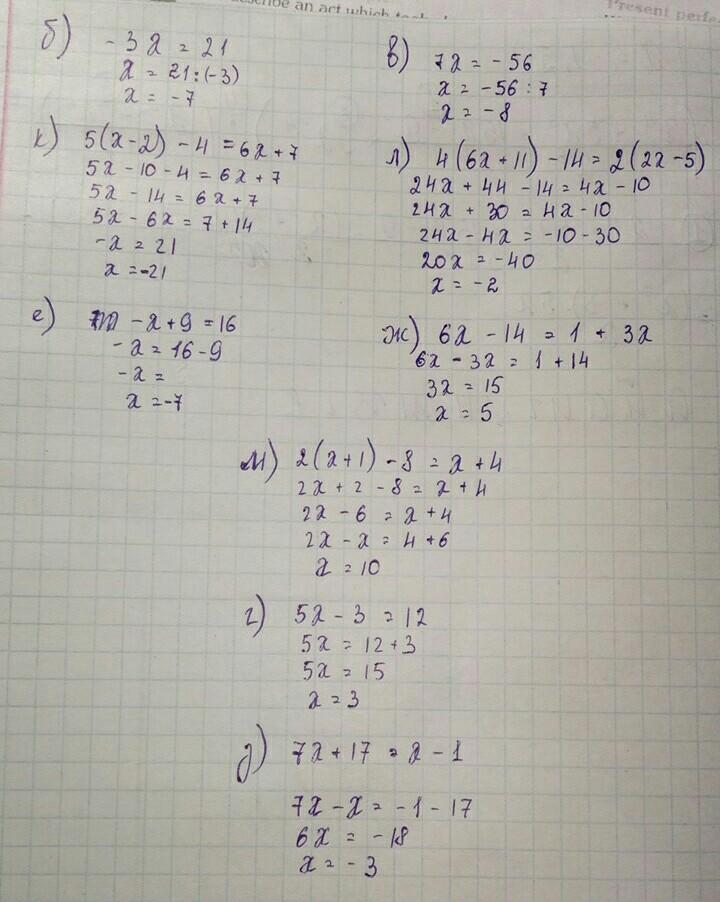 describe an act which
Present perfe
б) -3x = 21
x = 21:(-3)
x = -7
в) 7x = -56
x = -56 : 7
x = -8
к) 5(x-2) - 4 = 6x + 7
5x - 10 - 4 = 6x + 7
5x - 14 = 6x + 7
5x - 6x = 7 + 14
-x = 21
x = -21
л) 4(6x + 11) - 14 = 2(2x - 5)
24x + 44 - 14 = 4x - 10
24x + 30 = 4x - 10
24x - 4x = -10 - 30
20x = -40
x = -2
е) -x + 9 = 16
-x = 16 - 9
-x =
x = -7
ж) 6x - 14 = 1 + 3x
6x - 3x = 1 + 14
3x = 15
x = 5
м) 2(x+1) - 8 = x + 4
2x + 2 - 8 = x + 4
2x - 6 = x + 4
2x - x = 4 + 6
x = 10
г) 5x - 3 = 12
5x = 12 + 3
5x = 15
x = 3
д) 7x + 17 = x - 1
7x - x = -1 - 17
6x = -18
x = -3